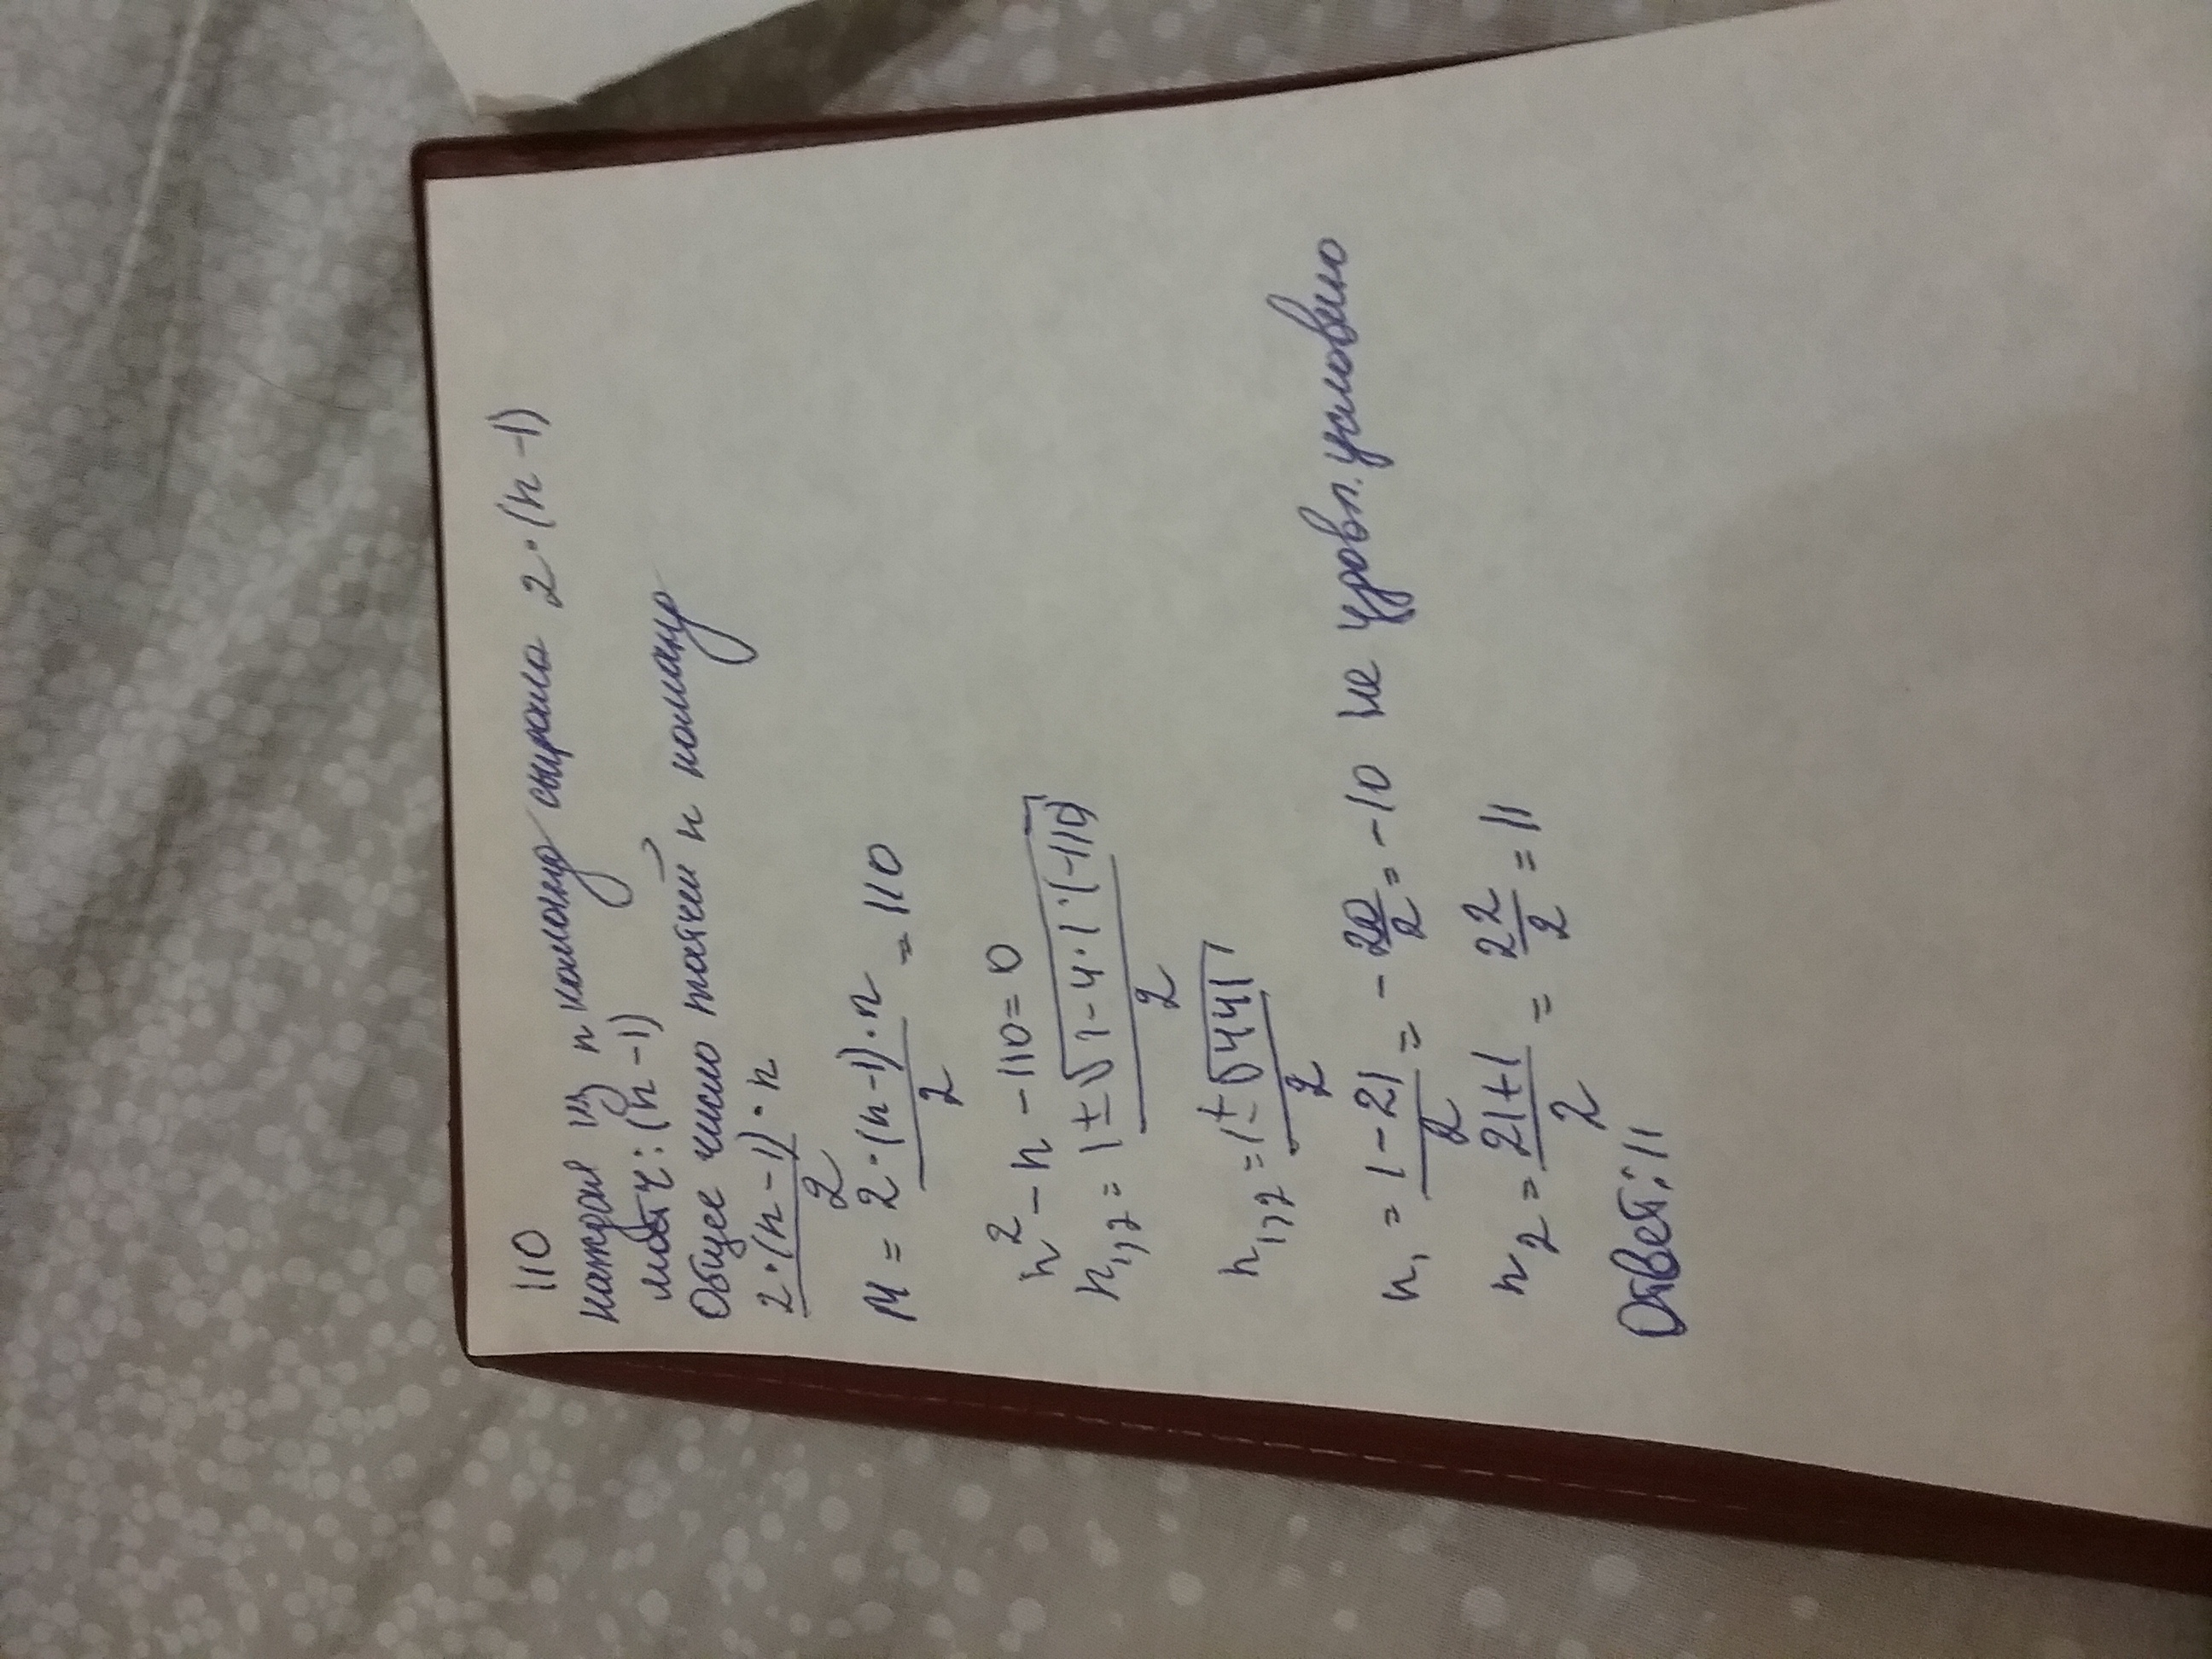 110
каждая из n команд сыграла 2·(n-1)
матч: (n-1)
Общее число матчей n команд
2·(n-1)·n / 2
M = 2·(n-1)·n / 2 = 110
n² - n - 110 = 0
n₁,₂ = 1 ± √1-4·1·(-110) / 2
n₁,₂ = 1 ± √441 / 2
n₁ = 1-21 / 2 = - 20/2 = -10 не удовл. условию
n₂ = 21+1 / 2 = 22/2 = 11
Ответ: 11